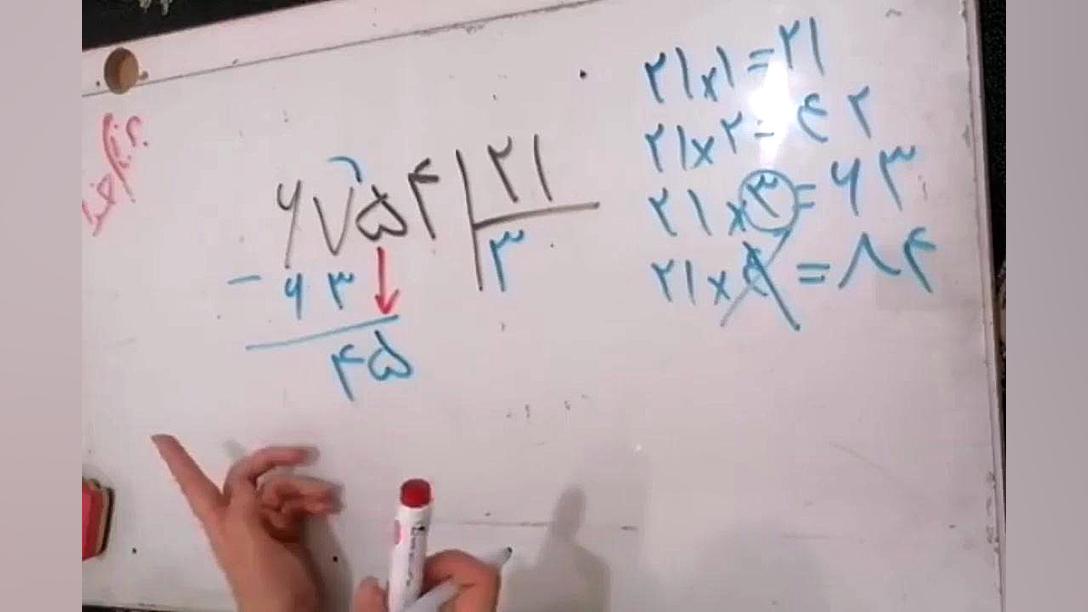 ۶۷۵۴ | ۲۱
- ۶۳ | ۳
۴۵
۲۱×۱=۲۱
۲۱×۲=۴۲
۲۱×۳=۶۳
۲۱×۴=۸۴